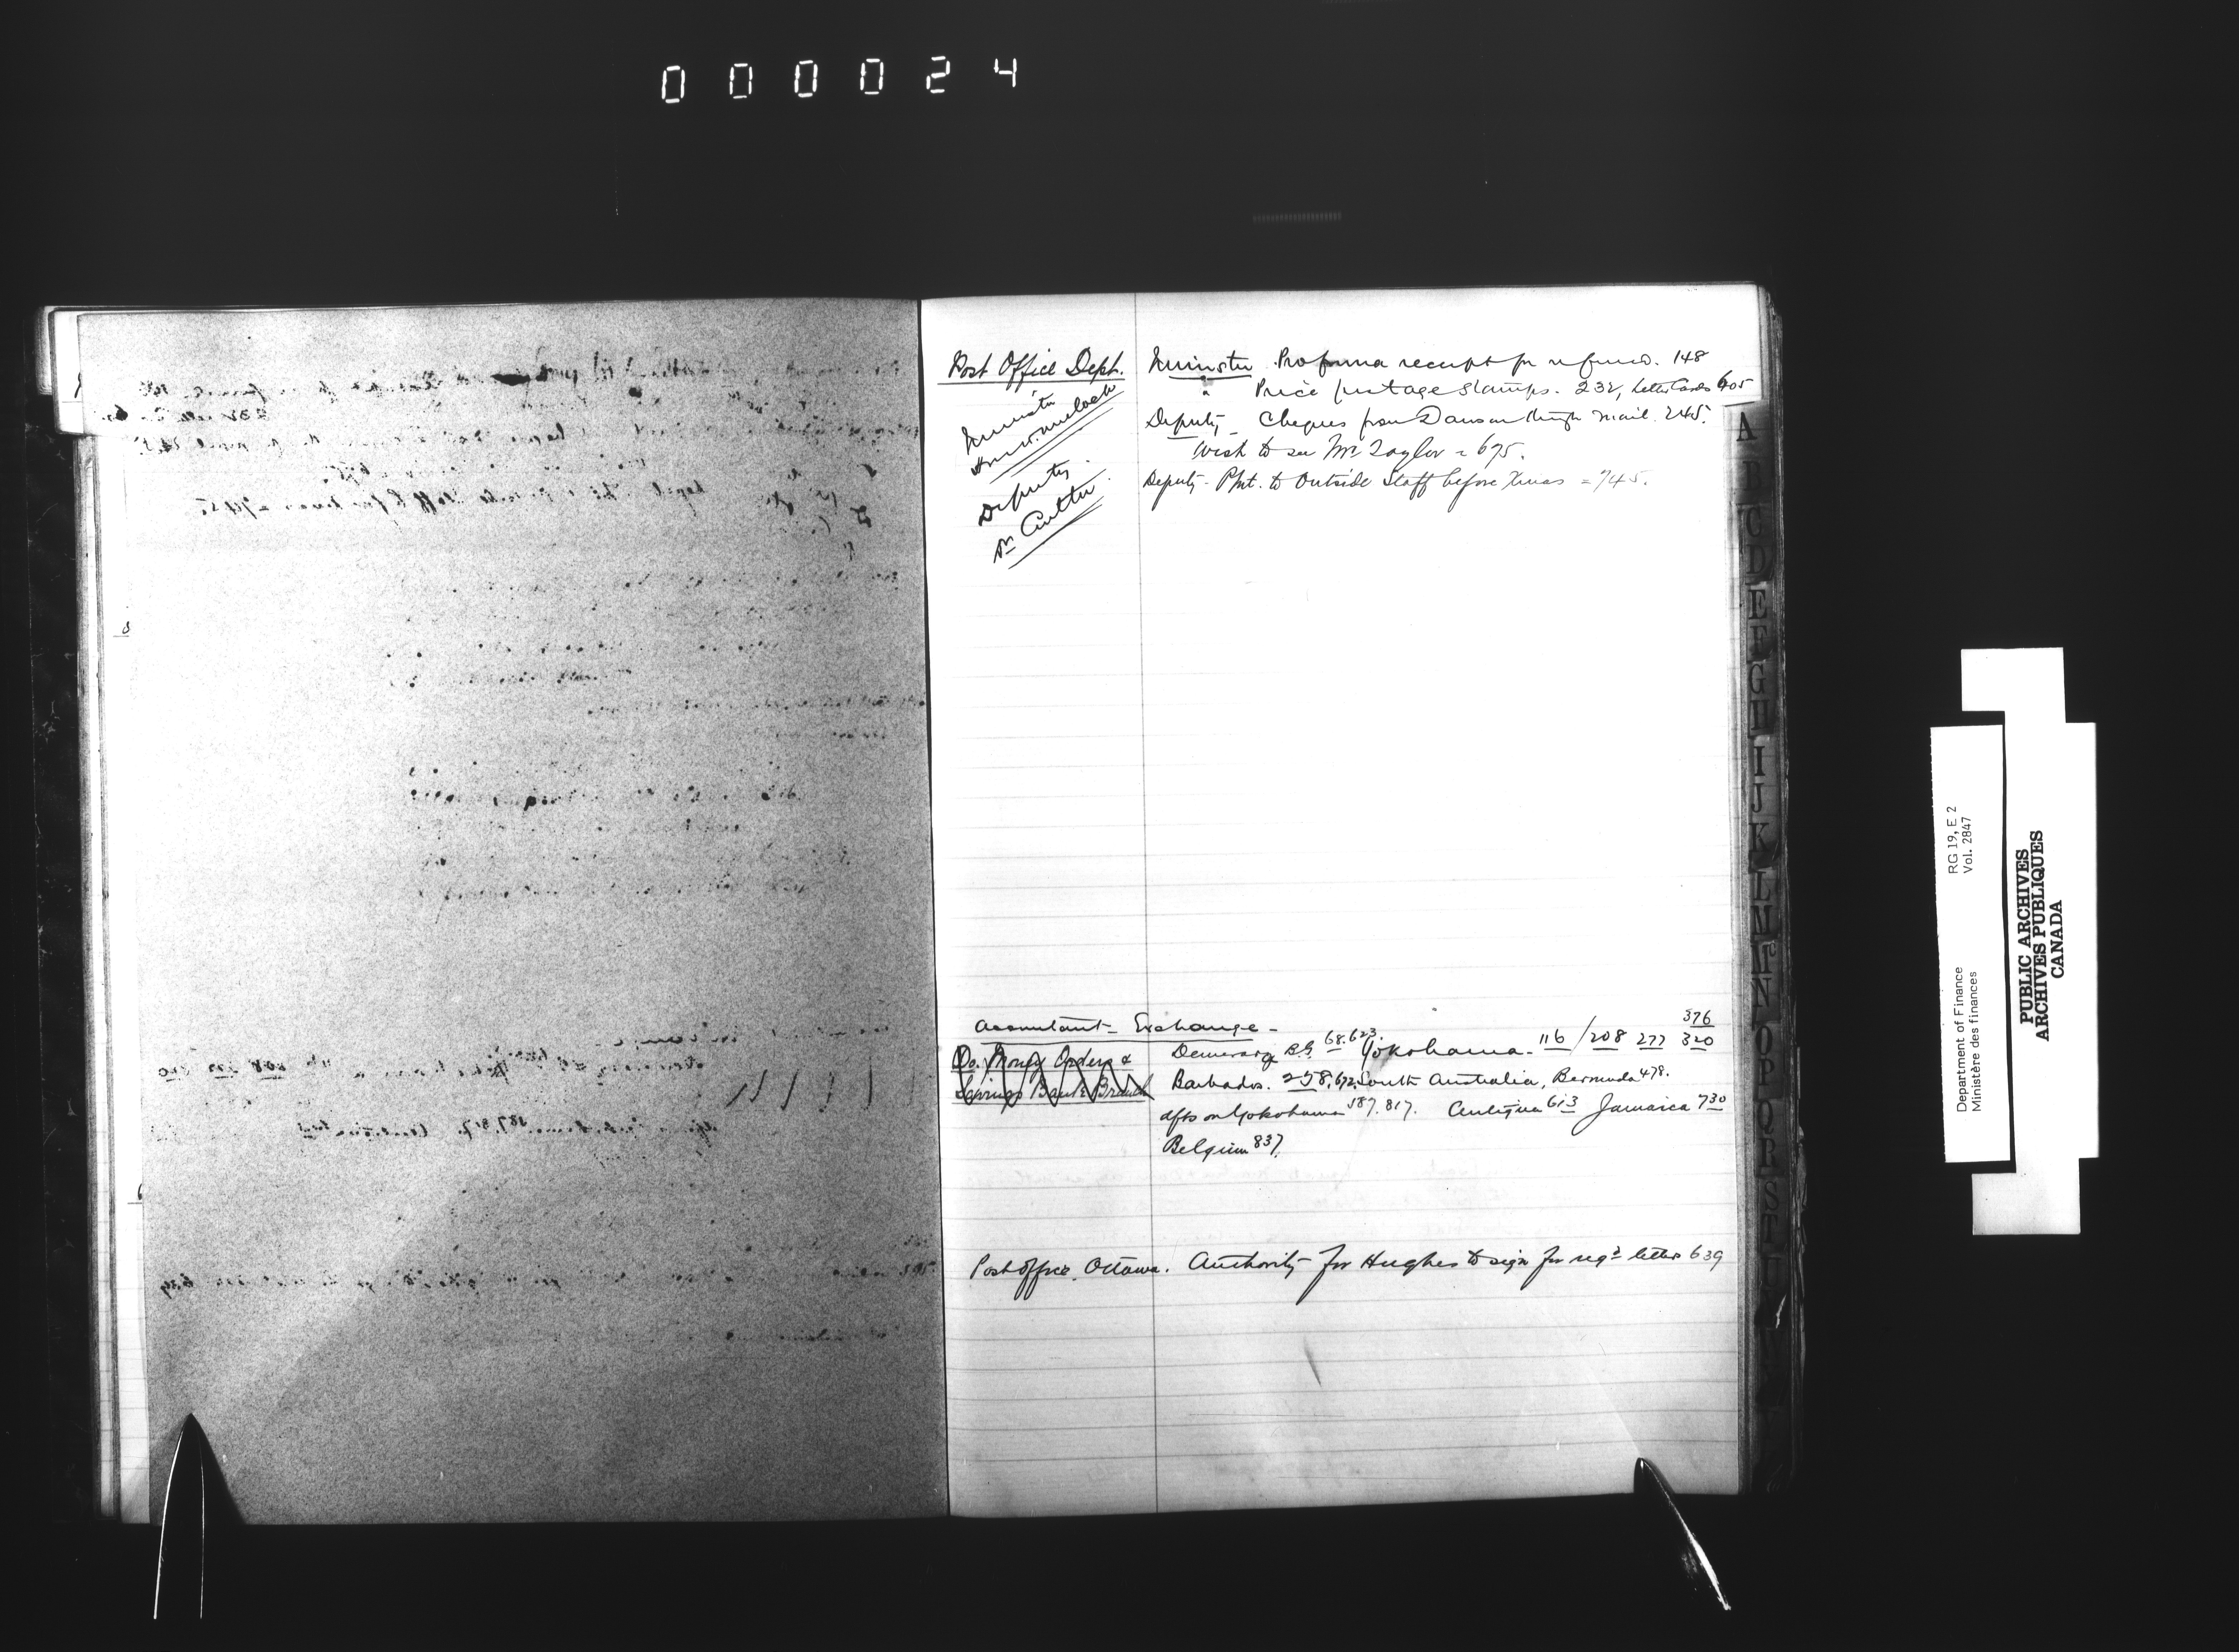 000024
Post Office Dept.
Minister Proforma receipt for refund. 148
" Price postage stamps. 232, Letter Cards 605
Deputy - Cheques from Dawson through mail. 245.
Wish to see Mr. Taylor = 675.
Deputy - Pmt. to Outside Staff before Xmas = 745.
Minister
Hon. W. Mulock
Deputy
Dr. Coulter
Accountant - Exchange -
Do. Money Orders &
Savings Bank Branch
Demerary B.G. 68. 623. Yokohama. 116 / 208 277 320
376
Barbados. 258, 672, South Australia, Bermuda 478.
dfts on Yokohama 587. 817. Antigua 613 Jamaica 730
Belgium 837.
Post office, Ottawa. Authority for Hughes to sign for regd letters 639
A
B
C
D
E
F
G
H
I
J
K
L
M
N
O
P
Q
R
S
T
U
Department of Finance RG 19, E 2
Ministère des finances Vol. 2847
PUBLIC ARCHIVES
ARCHIVES PUBLIQUES
CANADA